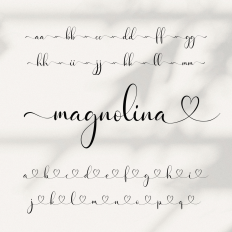 aa bb cc dd ee ff gg
hh ii jj kk ll mm
magnolina♡
a♡b♡c♡d♡e♡f♡g♡h♡i♡
j♡k♡l♡m♡n♡o♡p♡q♡